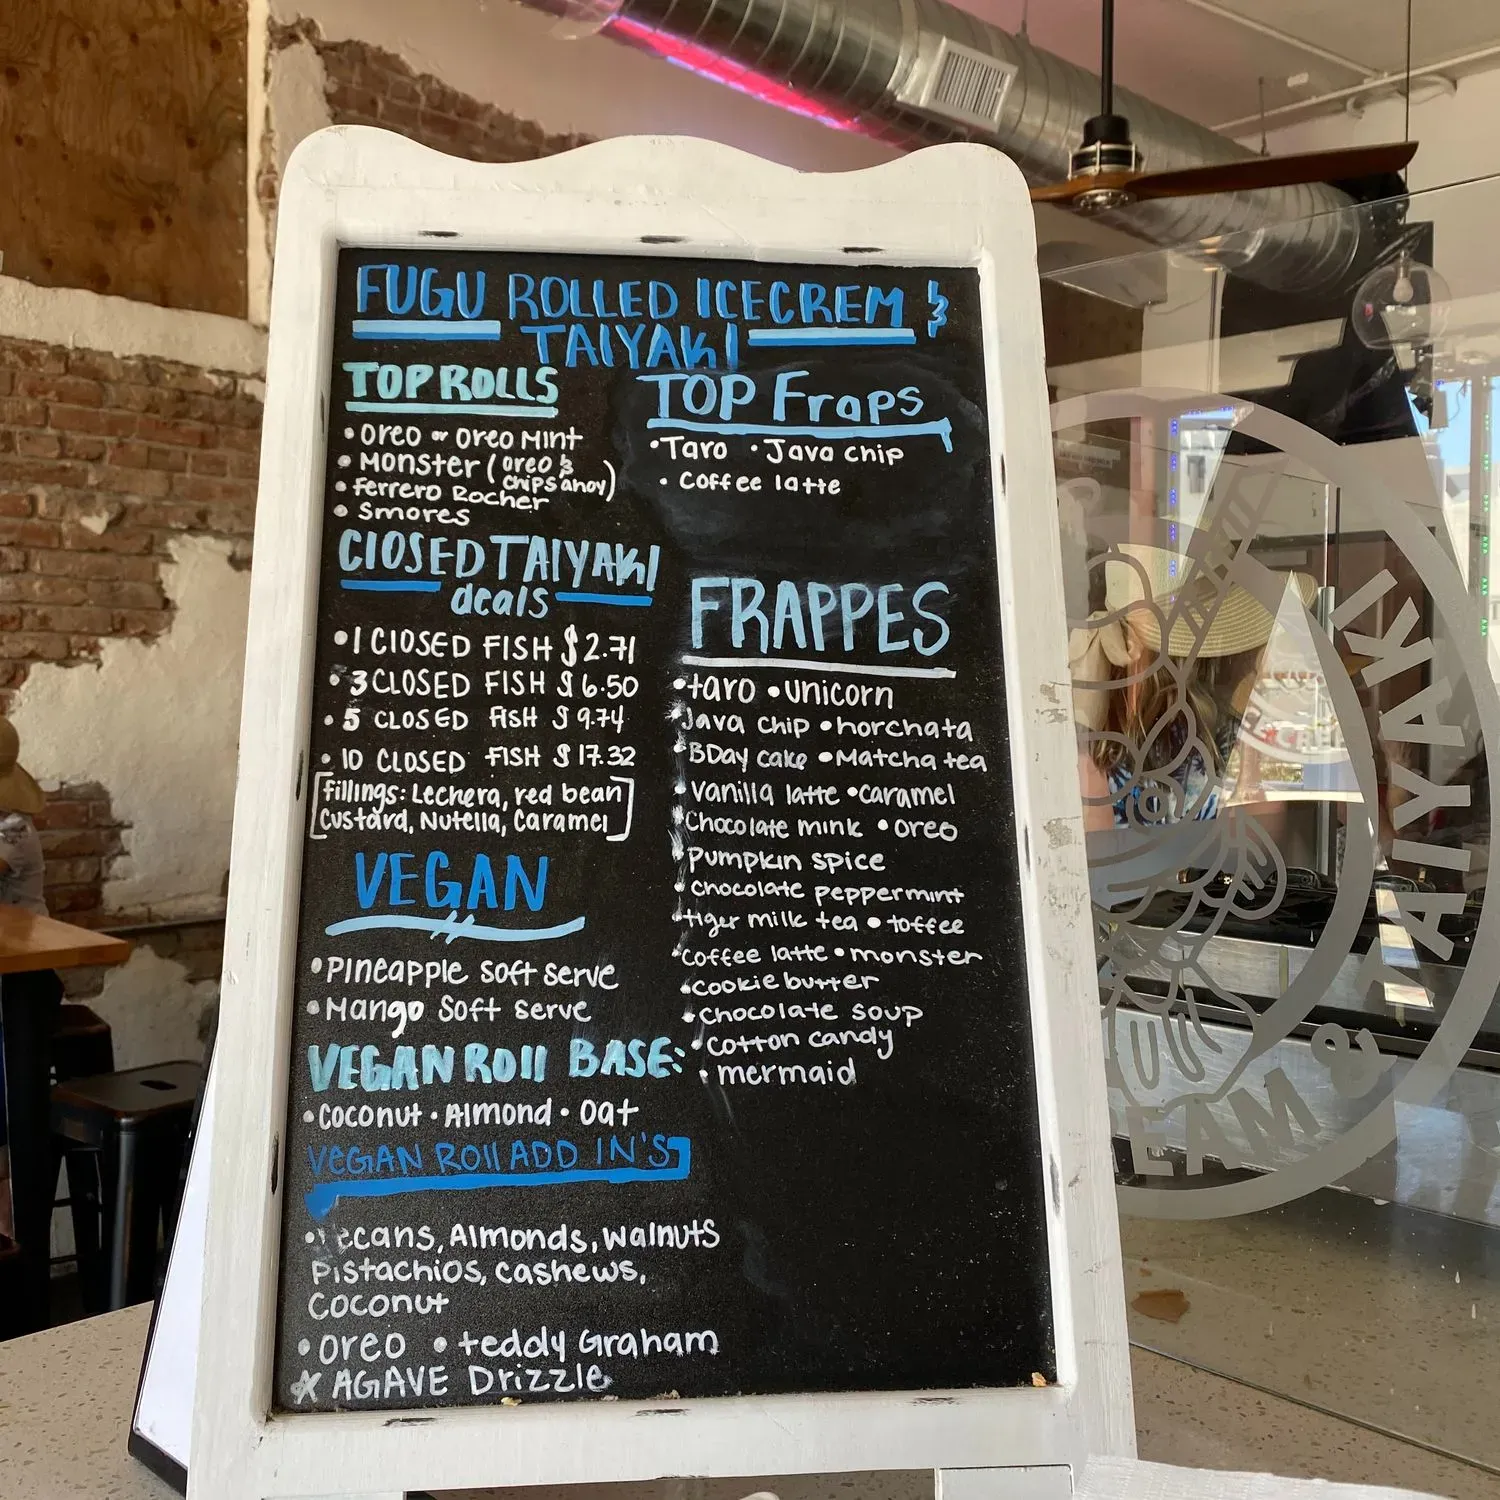 FUGU ROLLED ICECREM &
TAIYAKI
TOP ROLLS
• Oreo or Oreo Mint
• Monster (oreo &
chips ahoy)
• Ferrero Rocher
• Smores
CLOSED TAIYAKI
deals
• 1 CLOSED FISH $2.71
• 3 CLOSED FISH $6.50
• 5 CLOSED FISH $9.74
• 10 CLOSED FISH $17.32
[fillings: Lechera, red bean
custard, Nutella, Caramel]
VEGAN
• Pineapple Soft serve
• Mango Soft serve
VEGAN Roll BASE:
• Coconut • Almond • Oat
VEGAN Roll ADD IN'S
• Pecans, Almonds, Walnuts
Pistachios, Cashews,
Coconut
• Oreo • teddy Graham
* AGAVE Drizzle
TOP Fraps
• Taro • Java chip
• Coffee latte
FRAPPES
• taro • unicorn
• Java chip • horchata
• BDay cake • Matcha tea
• Vanilla latte • caramel
• Chocolate mink • oreo
• Pumpkin spice
• Chocolate peppermint
• tiger milk tea • toffee
• Coffee latte • monster
• Cookie butter
• Chocolate soup
• Cotton candy
• mermaid
EAM & TAIYAKI